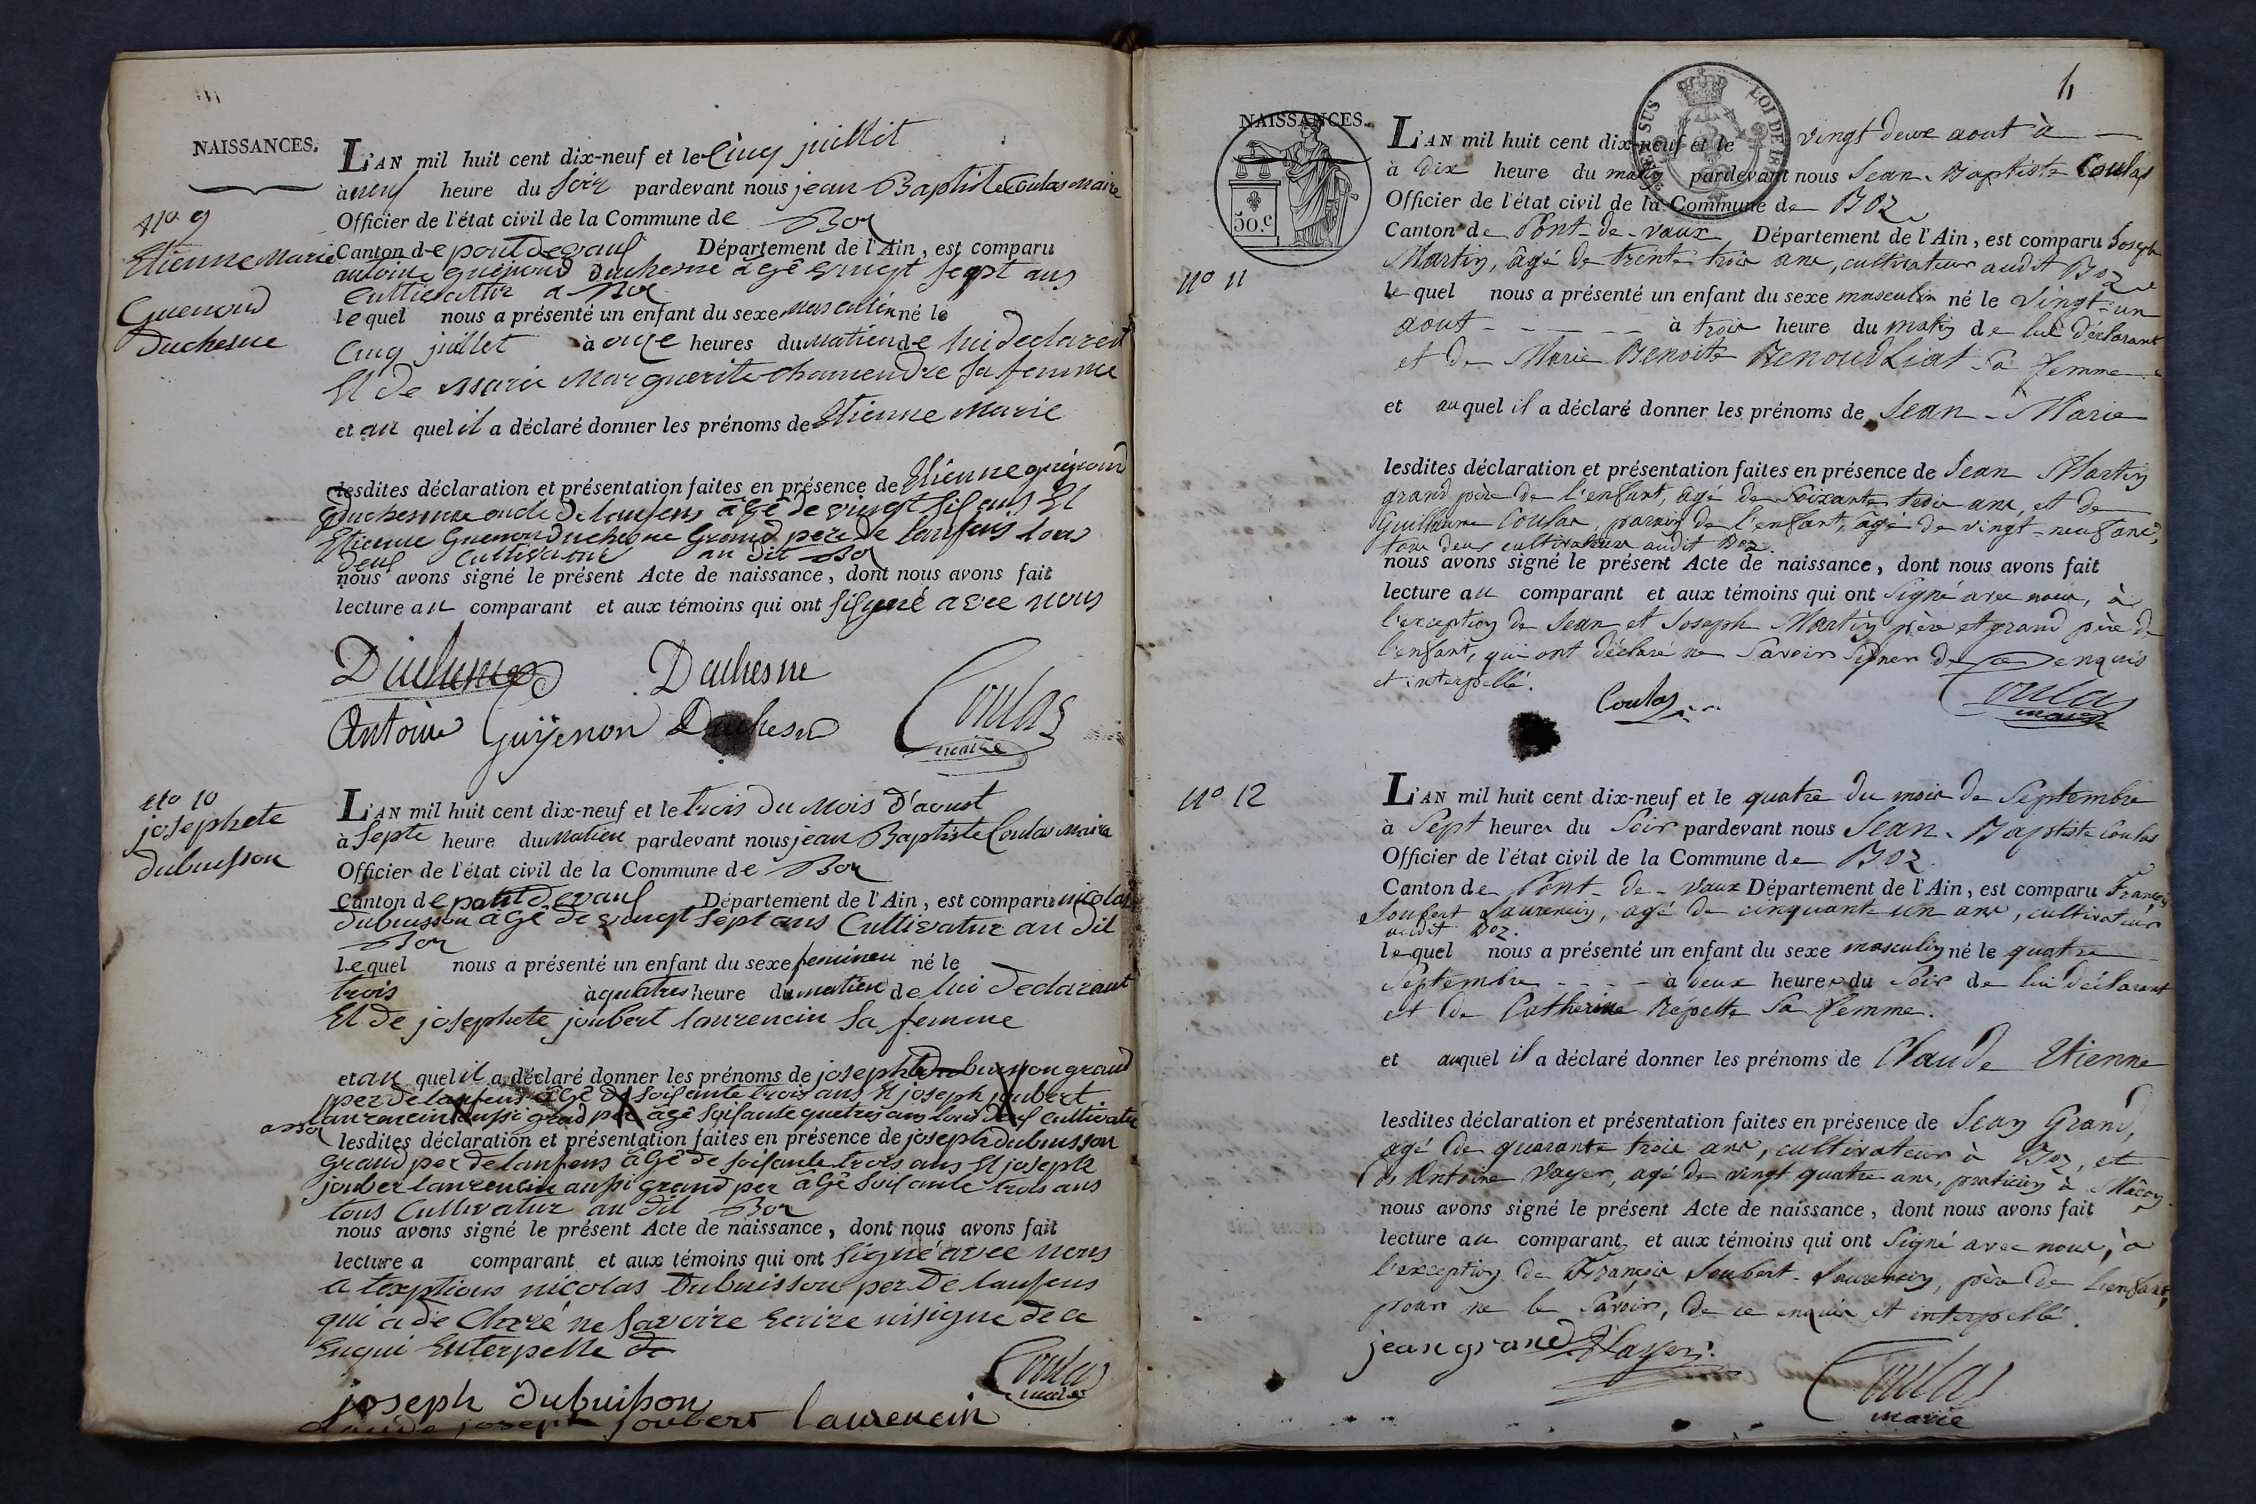 NAISSANCES.
L'AN mil huit cent dix-neuf et le Cinq juillit
à neuf heure du soir pardevant nous jean Baptiste Coulas maire
Officier de l'état civil de la Commune de Boz
Canton de pontdevaux Département de l'Ain, est comparu
antoine guenond duchesne âgé vingt sept ans
Cultivattur a Boz
lequel nous a présenté un enfant du sexe masculin né le
Cinq juillet à onze heures du matien de lui declarent
Et de Marie Marguerite chamendre sa femme
et au quel il a déclaré donner les prénoms de Etienne Marie
lesdites déclaration et présentation faites en présence de Etienne guenond
Duchesne oncle de lanfens âgé de vingt six ans Et
Etienne Guenon Duchesne Grand pere de lanfens tous
deux Cultivature au dit Boz
nous avons signé le présent Acte de naissance, dont nous avons fait
lecture au comparant et aux témoins qui ont signé avec nous
Duchesne Duchesne
Antoine Guyenon Duchesne Coulas
maire
No. 9
Etienne Marie
Guenond
Duchesne
No 10
josephete
dubuisson
L'AN mil huit cent dix-neuf et le trois du Mois D'aoust
à septe heure du matien pardevant nous jean Baptiste Coulas maire
Officier de l'état civil de la Commune de Boz
Canton de pontdevaux Département de l'Ain, est comparu nicolas
dubuisson âgé de vingt sept ans Cultivatur au dit
Boz
lequel nous a présenté un enfant du sexe feminen né le
trois à quatres heure du matien de lui declarant
Et de josephete joubert laurencin sa femme
et au quel il a déclaré donner les prénoms de joseph Dubuisson grand
per de lanfens âgé de soisante trois ans Et joseph joubert
laurencin aussi grad per âgé soisante quatres ans tous deux cultivatur
a Boz
lesdites déclaration et présentation faites en présence de joseph dubuisson
grand per de lanfens âgé de soisante trois ans Et joseph
jouber laurencin aussi grand per âgé soisante trois ans
tous Cultivatur au dit Boz
nous avons signé le présent Acte de naissance, dont nous avons fait
lecture a comparant et aux témoins qui ont signé avec nous
a lexptions nicolas Dubuisson per de lanfens
qui a de Claré ne savoire Ecrire nisigne de ce
Enqui Enterpelle de
Coulas
maire
joseph dubuisson
Claude joseph joubert laurencin
4
NAISSANCES.
50.c
LOI DE
L'AN mil huit cent dix-neuf et le vingt deux aout à
à Dix heure du matin pardevant nous Jean-Baptiste Coulas
Officier de l'état civil de la Commune de Boz
Canton de Pont-de-vaux Département de l'Ain, est comparu Joseph
Martin, âgé de trente trois ans, cultivateur audit Boz
lequel nous a présenté un enfant du sexe masculin né le vingt-un
aout à trois heure du matin de lui déclarant
et de Marie Benoite Renoud Liat sa femme
et auquel il a déclaré donner les prénoms de Jean-Marie
lesdites déclaration et présentation faites en présence de Jean Martin
grand père de l'enfant, agé de soixante trois ans, et de
Guillaume Coulas, parain de l'enfant, agé de vingt-neuf ans,
tous deux cultivateurs audit Boz.
nous avons signé le présent Acte de naissance, dont nous avons fait
lecture au comparant et aux témoins qui ont signé avec nous, à
l'exception de Jean et Joseph Martin père et grand père de
l'enfant, qui ont déclaré ne Savoir Signer de ce enquis
et interpellé.
Coulas Coulas
maire
No 11
No 12
L'AN mil huit cent dix-neuf et le quatre du mois de Septembre
à Sept heures du Soir pardevant nous Jean-Baptiste Coulas
Officier de l'état civil de la Commune de Boz.
Canton de Pont-de-Vaux Département de l'Ain, est comparu François
Joubert Laurencin, agé de cinquante-un ans, cultivateur
audit Boz.
lequel nous a présenté un enfant du sexe masculin né le quatre
Septembre à deux heures du Soir de lui déclarant
et de Catherine Répette Sa femme.
et auquel il a déclaré donner les prénoms de Claude Etienne
lesdites déclaration et présentation faites en présence de Jean Grand,
agé de quarante trois ans, cultivateur à Boz, et
d'Antoine Vayer, agé de vingt quatre ans, praticien à Mâcon.
nous avons signé le présent Acte de naissance, dont nous avons fait
lecture au comparant, et aux témoins qui ont Signé avec nous, à
l'exception de François Joubert-Laurencin, père de l'enfant,
pour ne le Savoir, de ce enquis et interpellé.
jean grand
Coulas
marie